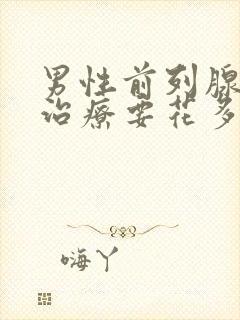 男性前列腺
治疗要花多
嗨丫